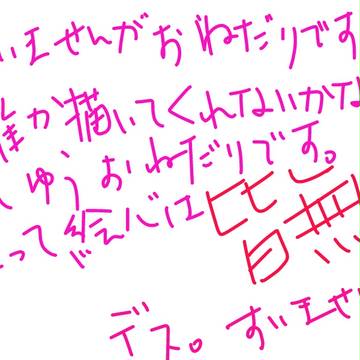 いませんがおねだりです
誰か描いてくれないかな
ゆうおねだりです。
って絵心は皆無
デス。すいませ